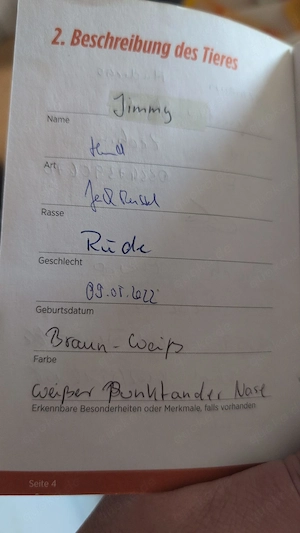 2. Beschreibung des Tieres
Jimmy
Name
Hund
Art
Jack Russel
Rasse
Rüde
Geschlecht
09.05.2022
Geburtsdatum
Braun-Weiß
Farbe
weißer Punkt an der Nase
Erkennbare Besonderheiten oder Merkmale, falls vorhanden
Seite 4